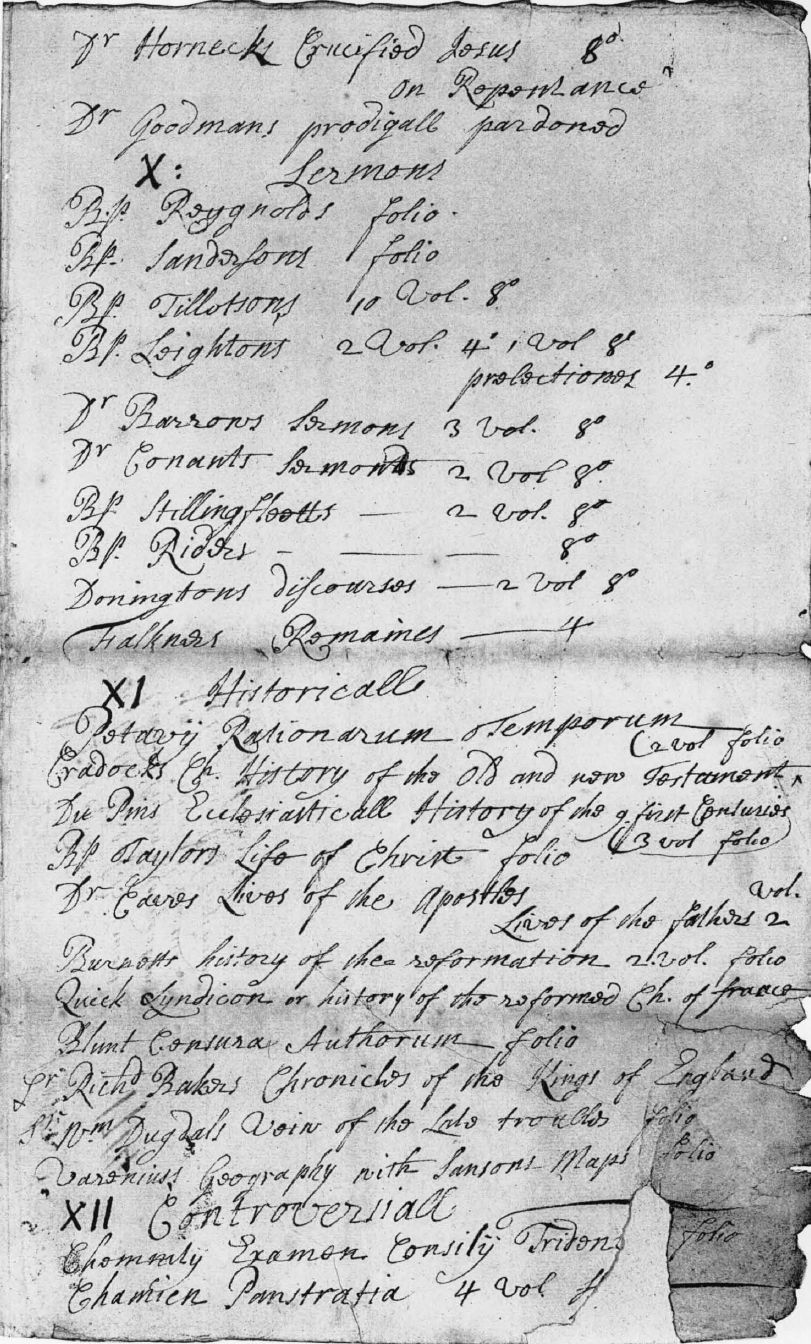 Dr Hornecks Crucified Jesus 8o
on Repentance
Dr Goodmans prodigall pardoned
X: Sermons
Bp. Reygnolds folio.
Bp. Sandersons folio
Bp. Tillotsons 10 Vol. 8o
Bp. Leightons 2 Vol. 4o 1 Vol 8o
prælectiones 4.o
Dr Barrows Sermons 3 Vol. 8o
Dr Conants Sermonds 2 Vol 8o
Bp. Stillingfleetts — 2 Vol. 8o
Bp. Riders - — — 8o
Doningtons discourses — 2 Vol 8o
Falkners Remaines — 4
XI Historicall
Petavij Rationarum Temporum
(2 vol folio
Cradocks Ch. History of the Old and new Testament ^
Du Pins Ecclesiasticall History of the 9 first Centuries
(3 vol folio)
Bp Taylors Life of Christ folio
Dr Caves Lives of the Apostles vol.
Lives of the fathers 2
Burnetts history of the reformation 2. vol. folio
Quick Syndicon or history of the reformed Ch. of france
Blunt Censura Authorum folio
Sr Richd Bakers Chronicles of the Kings of England
Sr. Wm Dugdals Veiw of the Late troubles folio
Vareniuss Geography with Sansons Maps folio
XII Controversiall
Chemnity Examen Consilij Triden folio
Chamien Panstratia 4 vol f